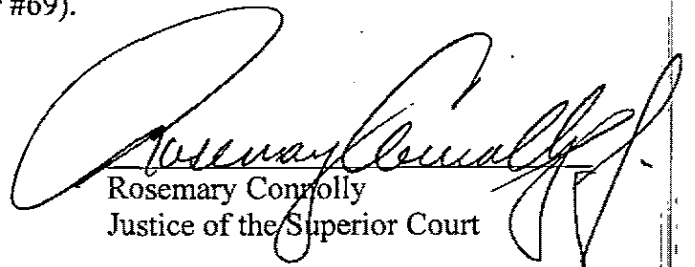 #69).
Rosemary Connolly, J.
Rosemary Connolly
Justice of the Superior Court